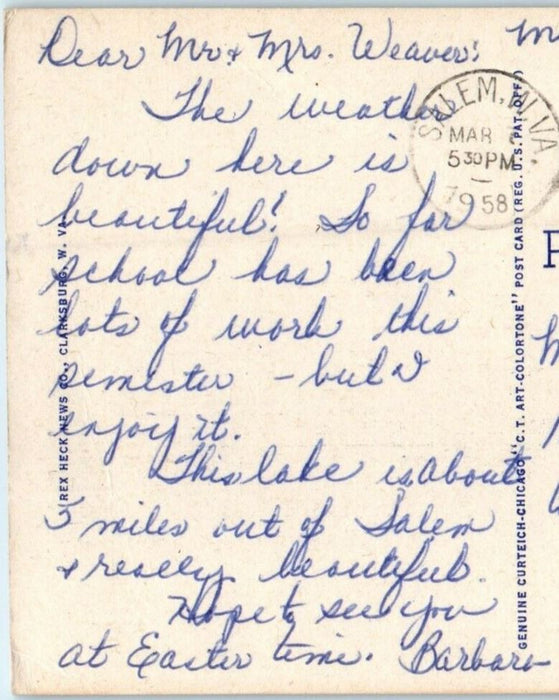 Dear Mr. & Mrs. Weaver:
The weather
down here is
beautiful! So far
school has been
lots of work this
semester - but I
enjoy it.
This lake is about
5 miles out of Salem
& really beautiful.
Hope to see you
at Easter time. Barbara
SALEM, W. VA.
MAR
5 30 PM
1958
REX HECK NEWS CO., CLARKSBURG, W. VA.
GENUINE CURTEICH-CHICAGO "C.T. ART-COLORTONE" POST CARD (REG. U.S. PAT. OFF.)
P